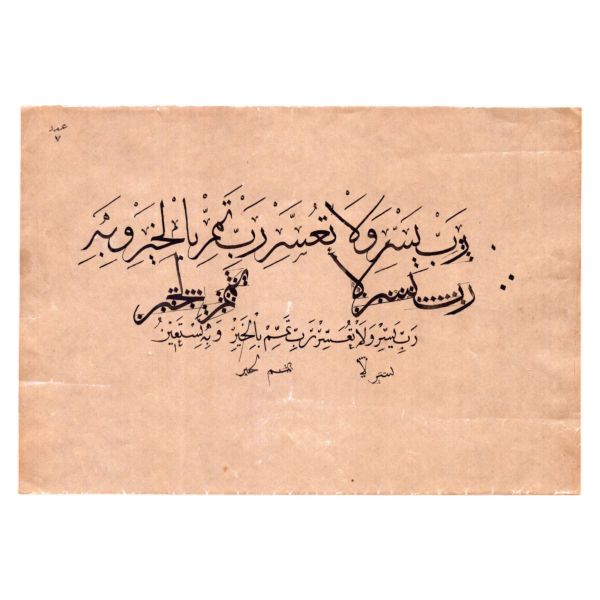 عدد
٧
رَبِّ يَسِّرْ وَلَا تُعَسِّرْ رَبِّ تَمِّمْ بِالْخَيْرِ وَبِهِ
رَبِّ يسر لا تمم بالخير
رَبِّ يَسِّرْ وَلَا تُعَسِّرْ رَبِّ تَمِّمْ بِالْخَيْرِ وَبِهِ نَسْتَعِينُ
يسر لا تمم الخير